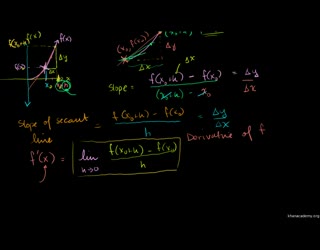 f(x)
f(x)
f(x₀+h)
Δy
Δx
x₀
(x₀,f(x₀))
Δy
Δx
Slope = f(x₀+h) - f(x₀) / (x₀+h) - x₀ = Δy / Δx
Slope of secant line = f(x₀+h) - f(x₀) / h = Δy / Δx
f'(x) = lim h→0 f(x₀+h) - f(x₀) / h
Derivative of f
khanacademy.org